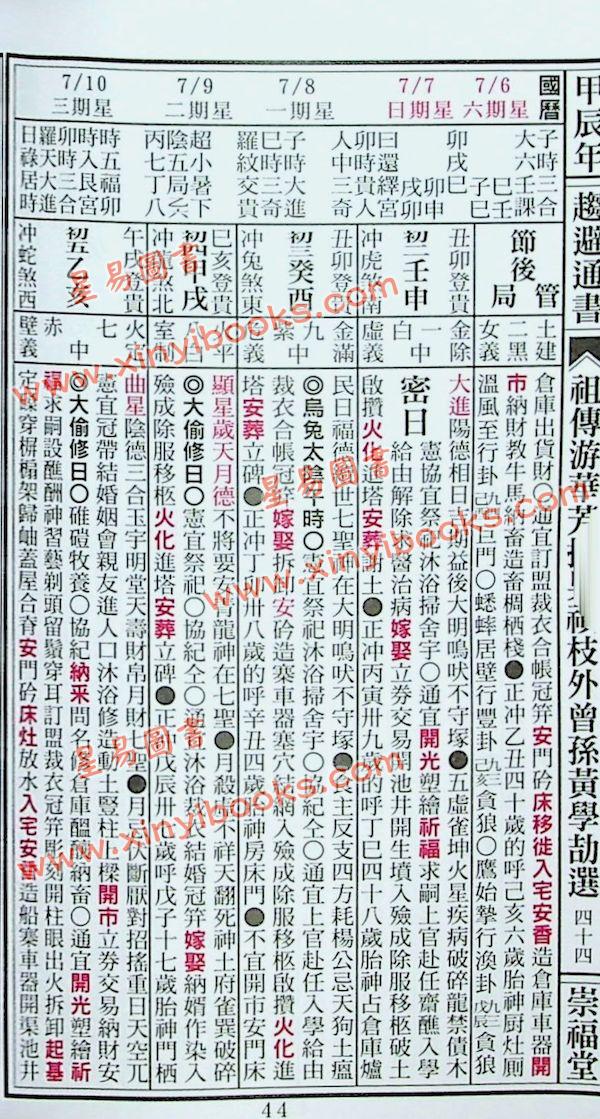 甲辰年
趨避通書
祖傳游華芳
枝外曾孫黃學劼選
四十四
崇福堂
國曆
7/6
星期六
子時三合
大六壬課
子巳
節後
管局
土建
二黑
女義
倉庫出貨財○通宜訂盟裁衣合帳冠笄安門砛床移徙入宅安香造倉庫車器開
市納財教牛馬
造畜椆栖棧●正冲乙丑四十歲的呼己亥六歲胎神厨灶厠
溫風至行卦
巨門○蟋蟀居壁行豐卦
貪狼○鷹始摯行渙卦
貪狼
7/7
星期日
卯戌巳
日還繹宮
卯時貴人
人中三奇
丑卯登貴
初二壬申
冲虎煞南
金除
一中
白
虛義
大進陽德相日
益後大明鳴吠不守塚●五虛雀坤火星疾病破碎龍禁債木
密日
憲協宜祭祀沐浴掃舍宇○通宜開光塑繪祈福求嗣上官赴任齋醮入學
給由解除
醫治病嫁娶立券交易開池井開生墳入殮成除服移柩破土
啟攢火化進塔安葬
土●正冲丙寅卅九歲的呼丁巳四十八歲胎神占倉庫爐
7/8
星期一
子時大進
巳時三奇
羅紋交貴
丑卯登貴
初三癸酉
冲兔煞東
金滿
九中
紫
危義
民日福德
世七聖
在大明鳴吠不守塚●
主反支四方耗楊公忌天狗土瘟
◎烏兔太陰
時○憲宜祭祀沐浴掃舍宇○協紀仝○通宜上官赴任入學給由
裁衣合帳冠笄嫁娶拆
安砛造寨車器塞穴結網入殮成除服移柩啟攢火化進
塔安葬立碑●正冲丁
卅八歲的呼辛丑四歲胎神房床門●不宜開市安門床
7/9
星期二
超小暑下
陰五局
丙七丁八
巳亥登貴
初四甲戌
冲龍煞北
火平
室制
顯星歲天月德
不將要安
龍神在七聖●月殺
不祥天翻死神土府雀巽破碎
◎大偷修日○憲宜祭祀○協紀仝○通
沐浴裁衣結婚冠笄嫁娶納婿作染入
殮成除服移柩火化進塔安葬立碑●正冲戊辰卅七歲呼戊子十七歲胎神門栖
7/10
星期三
時五福卯
時入艮宮
卯時三合
羅天大進
日祿居時
午戌登貴
初五乙亥
冲蛇煞西
火定
七中
赤
壁義
曲星陰德三合玉宇明堂天壽財帛月財七聖●月忌伏斷厭對招搖重日天空亢
憲宜冠帶結婚姻會親友進人口沐浴修造動土豎柱上樑開市立券交易納財安
◎大偷修日○碓磑牧養○協紀納采問名修倉庫醞釀納畜○通宜開光塑繪祈
福求嗣設醮酬神習藝剃頭留鬚穿耳訂盟裁衣冠笄彫刻開柱眼出火拆卸起基
定磉穿屏扇架歸岫蓋屋合脊安門砛床灶放水入宅安香造船寨車器開渠池井
44
星易圖書
www.xinyibooks.com
星易圖書
www.xinyibooks.com
星易圖書
www.xinyibooks.com